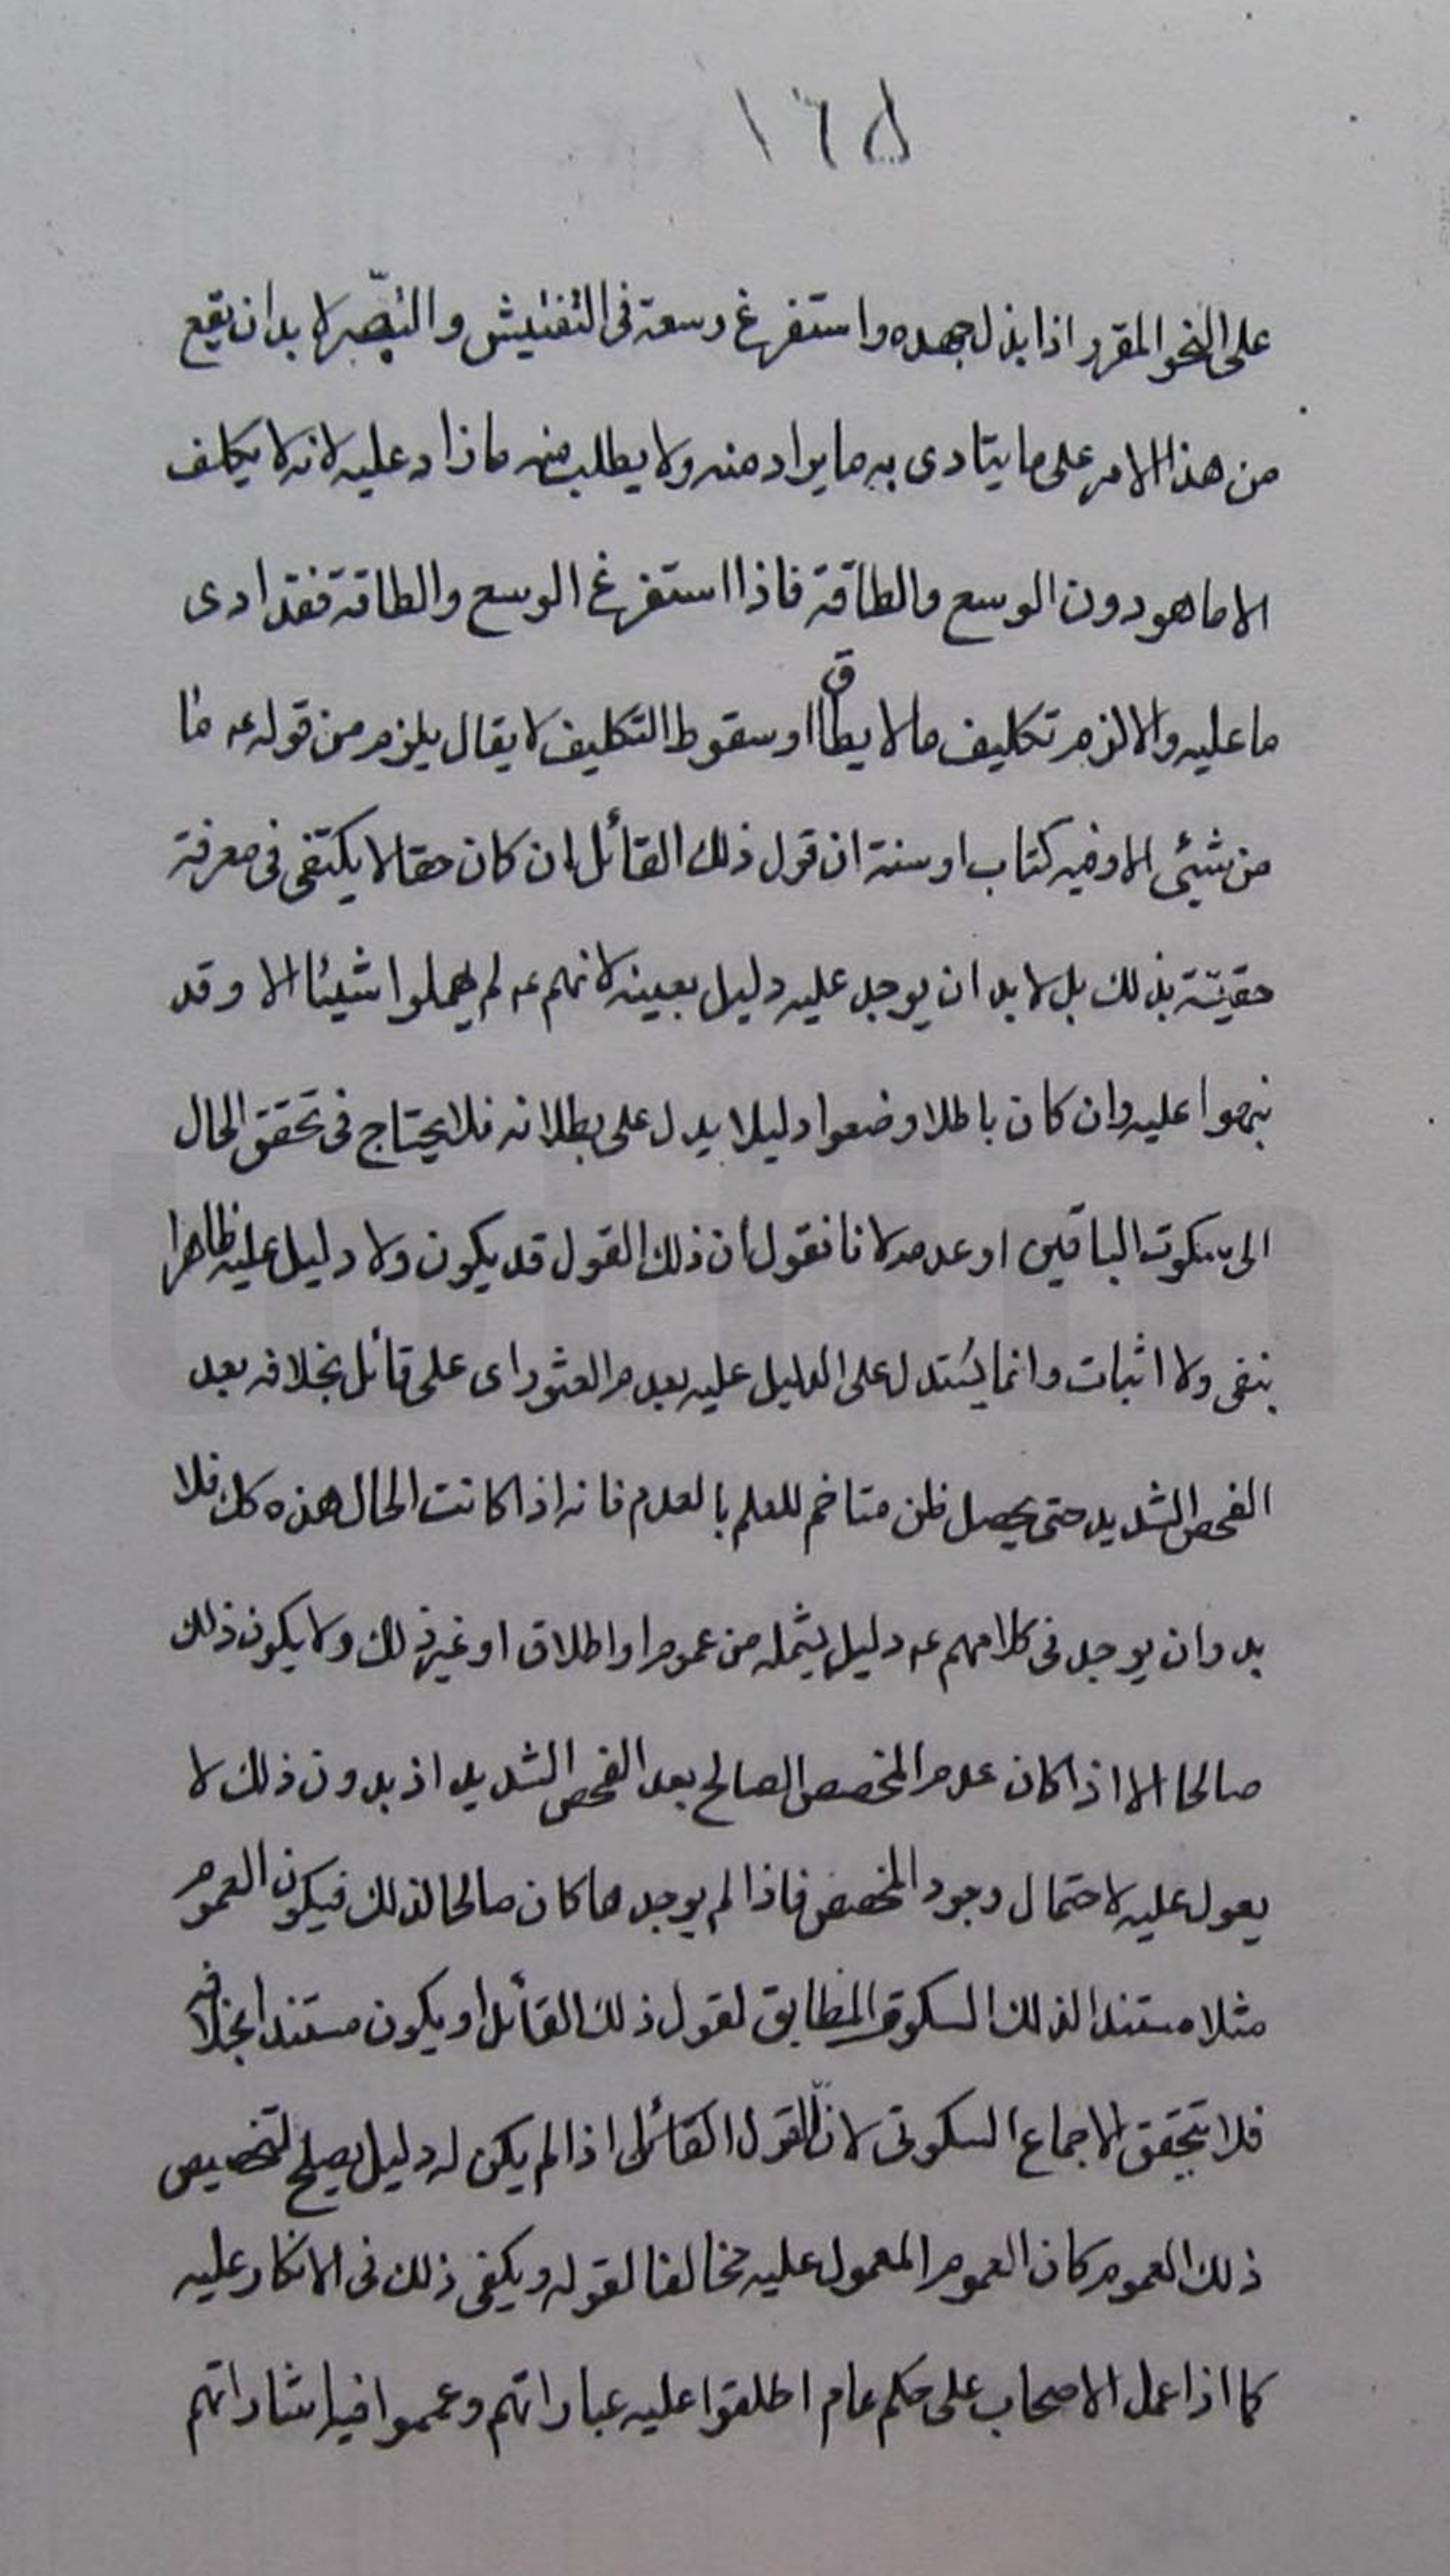 ١٦٥
على النحو المقرر اذا بذل جهده واستفرغ وسعة فى التفتيش والتبصّر لا بد ان يقع
من هذا الامر على ما يتادى به ما يراد منه ولا يطلب منه ما زاد عليه لانه لا يكلف
الا ما هو دون الوسع والطاقة فاذا استفرغ الوسع والطاقة فقد ادى
ما عليه والا لزم تكليف ما لا يطاق او سقوط التكليف لا يقال يلزم من قوله ع ما
من شيئى الا وفيه كتاب او سنة ان قول ذلك القائل ان كان حقا لا يكتفى فى معرفة
حقيّته بذلك بل لا بد ان يوجد عليه دليل بعينه لانهم ع لم يهملوا شيئا الا وقد
نبهوا عليه وان كان باطلا وضعوا دليلا يدل على بطلانه فلا يحتاج فى تحقق الحال
الى سكوت الباقين او عدمه لانا نقول ان ذلك القول قد يكون ولا دليل عليه ظاهرا
بنفى ولا اثبات وانما يستدل على الدليل عليه بعدم العثور اى على قائل بخلافه بعد
الفحص الشديد حتى يحصل ظن متاخم للعلم بالعدم فانه اذا كانت الحال هذه كك فلا
بد وان يوجد فى كلامهم ع دليل يشمله من عموم او اطلاق او غير ذلك ولا يكون ذلك
صالحا الا اذا كان عدم المخصص الصالح بعد الفحص الشديد اذ بدون ذلك لا
يعول عليه لاحتمال وجود المخصص فاذا لم يوجد ها كان صالحا لذلك فيكون العموم
مثلا مستندا لذلك السكوتى المطابق لقول ذلك القائل او يكون مستندا بخلافه
فلا يتحقق الاجماع السكوتى لانّ القول القائل اذا لم يكن له دليل يصلح لتخصيص
ذلك العموم كان العموم المعمول عليه مخالفا لقوله ويكفى ذلك فى الانكار عليه
كما اذا عمل الاصحاب على حكم عام اطلقوا عليه عباراتهم وعمموا فيه اشاراتهم